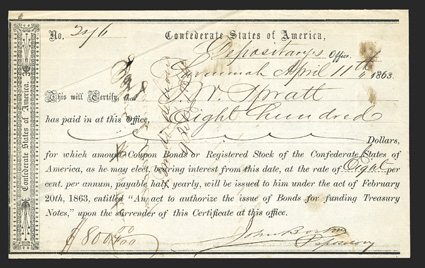 No. 296 Confederate States of America,
Depositary's Office,
Savannah April 11th 1863
This will Certify, that
has paid in at this Office, Eight Hundred
Dollars,
for which amount Coupon Bonds or Registered Stock of the Confederate States of
America, as he may elect, bearing interest from this date, at the rate of Eight per
cent. per annum, payable half yearly, will be issued to him under the act of February
20th, 1863, entitled "An act to authorize the issue of Bonds for funding Treasury
Notes," upon the surrender of this Certificate at this office.
$800 00/100
Depositary
Confederate States of America.